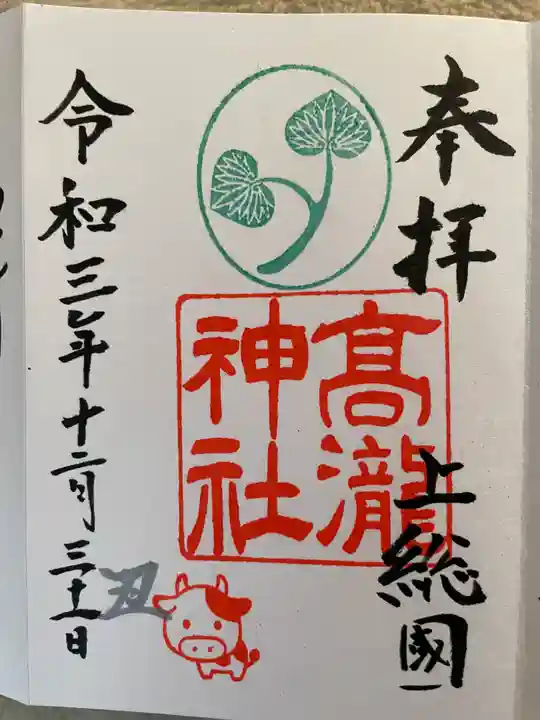 奉拝
上総國一
髙瀧
神社
丑
令和三年十二月三十一日